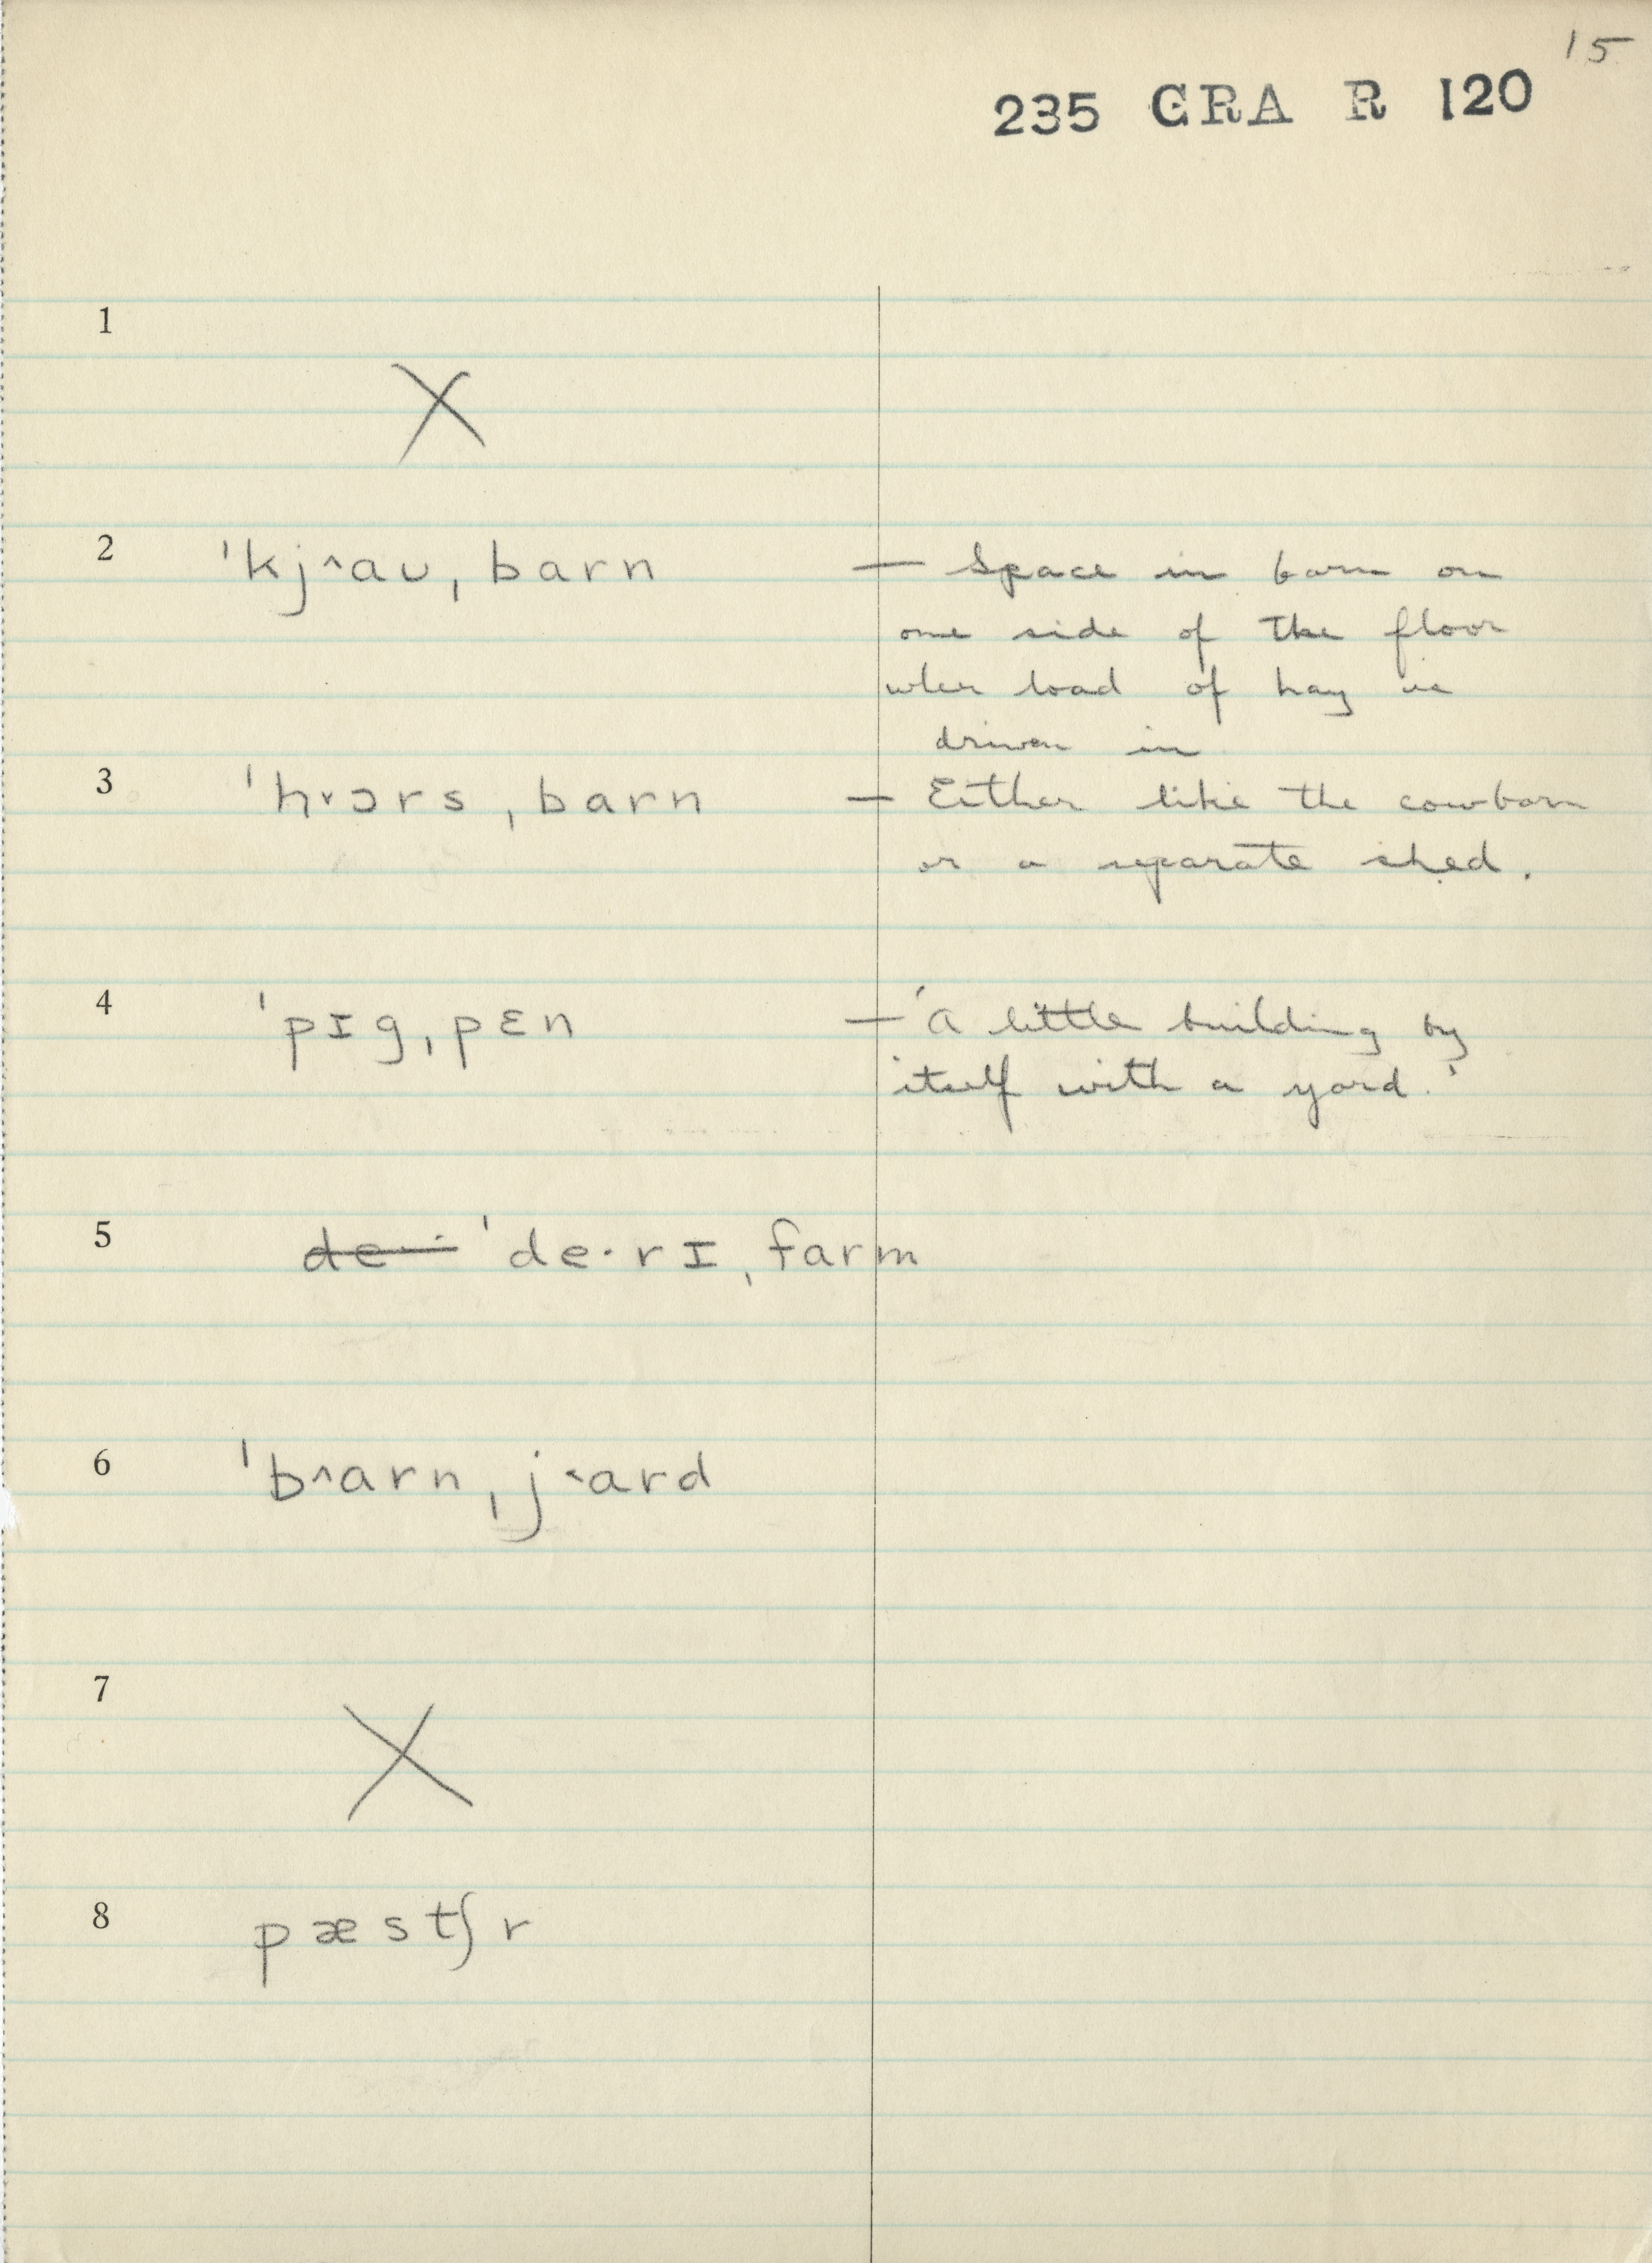 15
235 GRA R 120
1
X
2 ˈkj^aʊ, barn — Space in barn on
one side of the floor
when load of hay is
driven in
3 ˈhᵛɔrs, barn — Either like the cowbarn
or a separate shed.
4 ˈpɪg, pɛn — 'a little building by
itself with a yard.'
5 de·· ˈde·rɪ, farm
6 ˈb^arn, j˂ard
7
X
8 pæstʃr